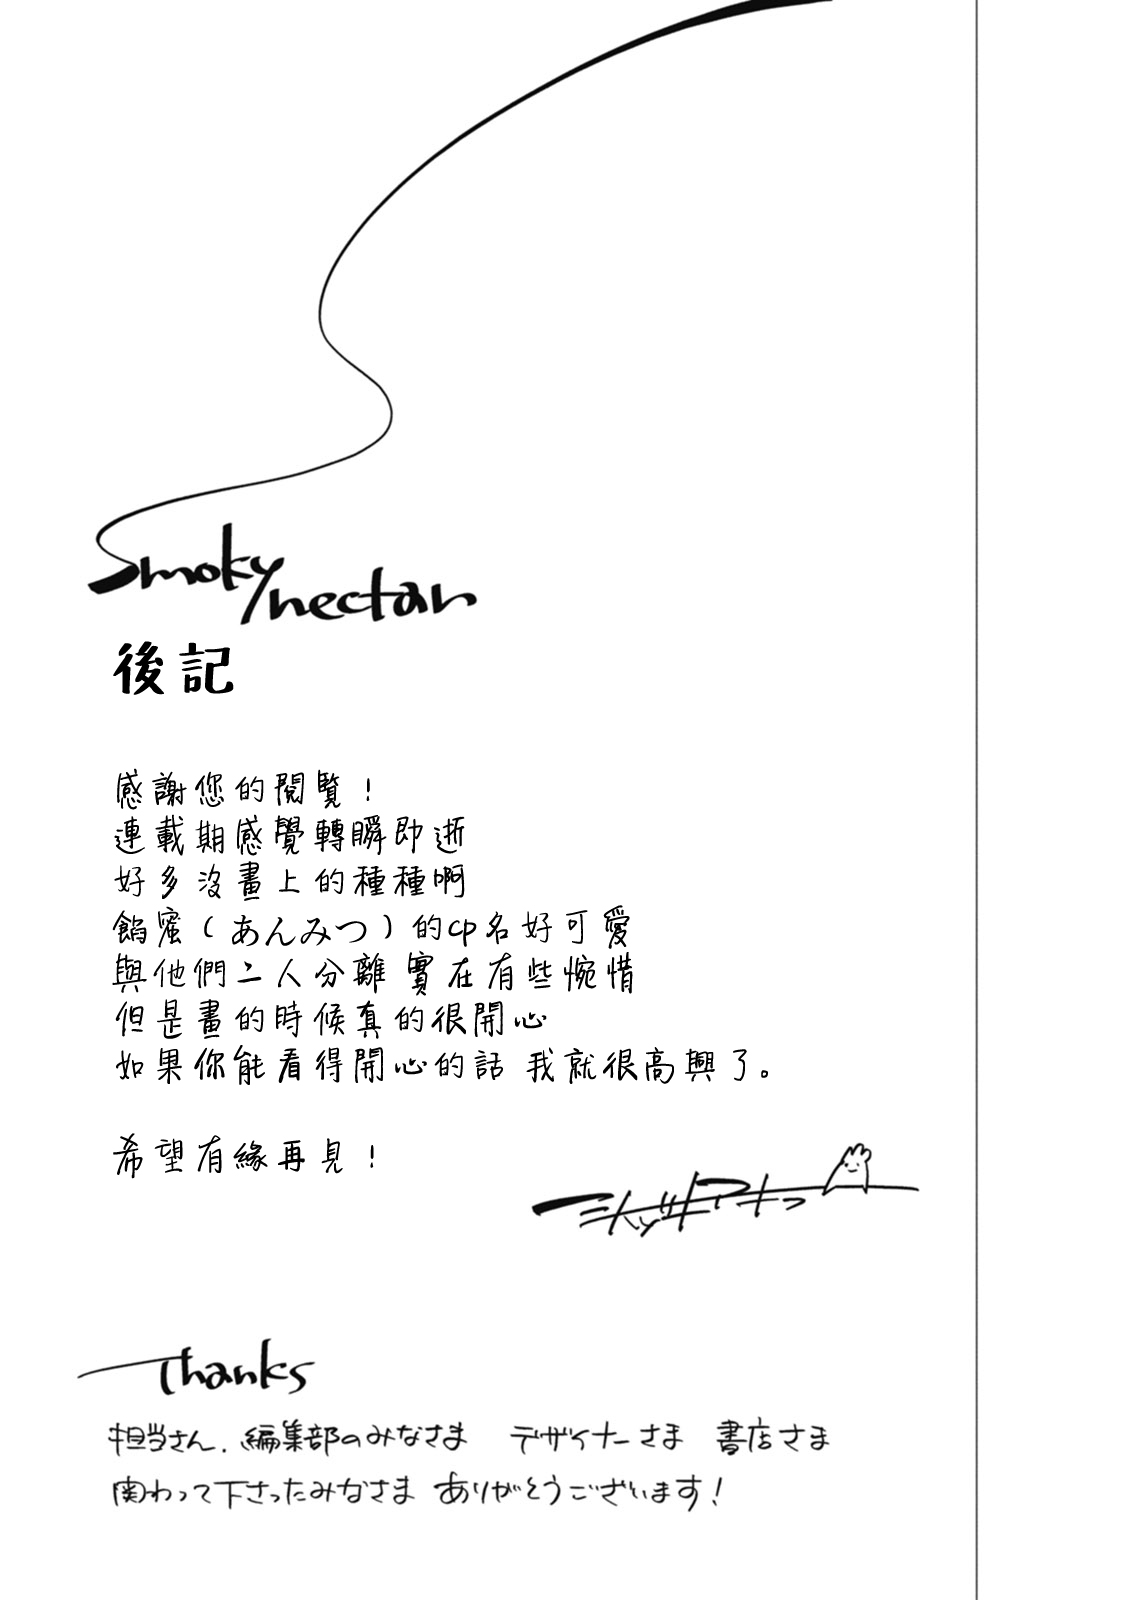 Smoky nectar
後記
感謝您的閱覧！
連載期感覺轉瞬即逝
好多沒畫上的種種啊
餡蜜（あんみつ）的CP名好可愛
與他們二人分離 實在有些惋惜
但是畫的時候真的很開心
如果你能看得開心的話 我就很高興了。
希望有緣再見！
Thanks
担当さん、編集部のみなさま デザイナーさま 書店さま
関わって下さったみなさま ありがとうございます！